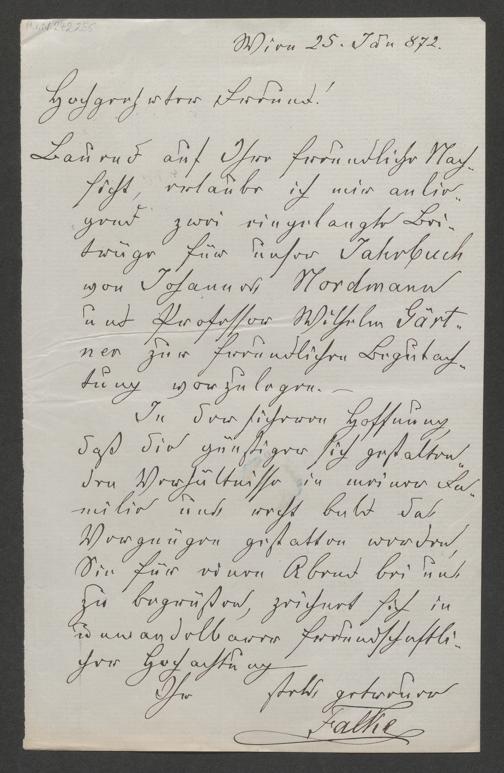 Wien 25. Jän 872.
Hochgeehrter Freund!
Bauend auf Ihre freundliche Nach-
sicht, erlaube ich mir anlie-
gend zwei eingelangte Bei-
träge für unser Jahrbuch
von Johannes Nordmann
und Professor Wilhelm Gärt-
ner zur freundlichen Begutach-
tung vorzulegen. —
In der sicheren Hoffnung,
daß die günstiger sich gestalten-
den Verhältnisse in meiner Fa-
milie uns recht bald das
Vergnügen gestatten werden,
Sie für einen Abend bei uns
zu begrüßen, zeichnet sich in
unwandelbarer freundschaftli-
cher Hochachtung
Ihr stets getreuer
Falke